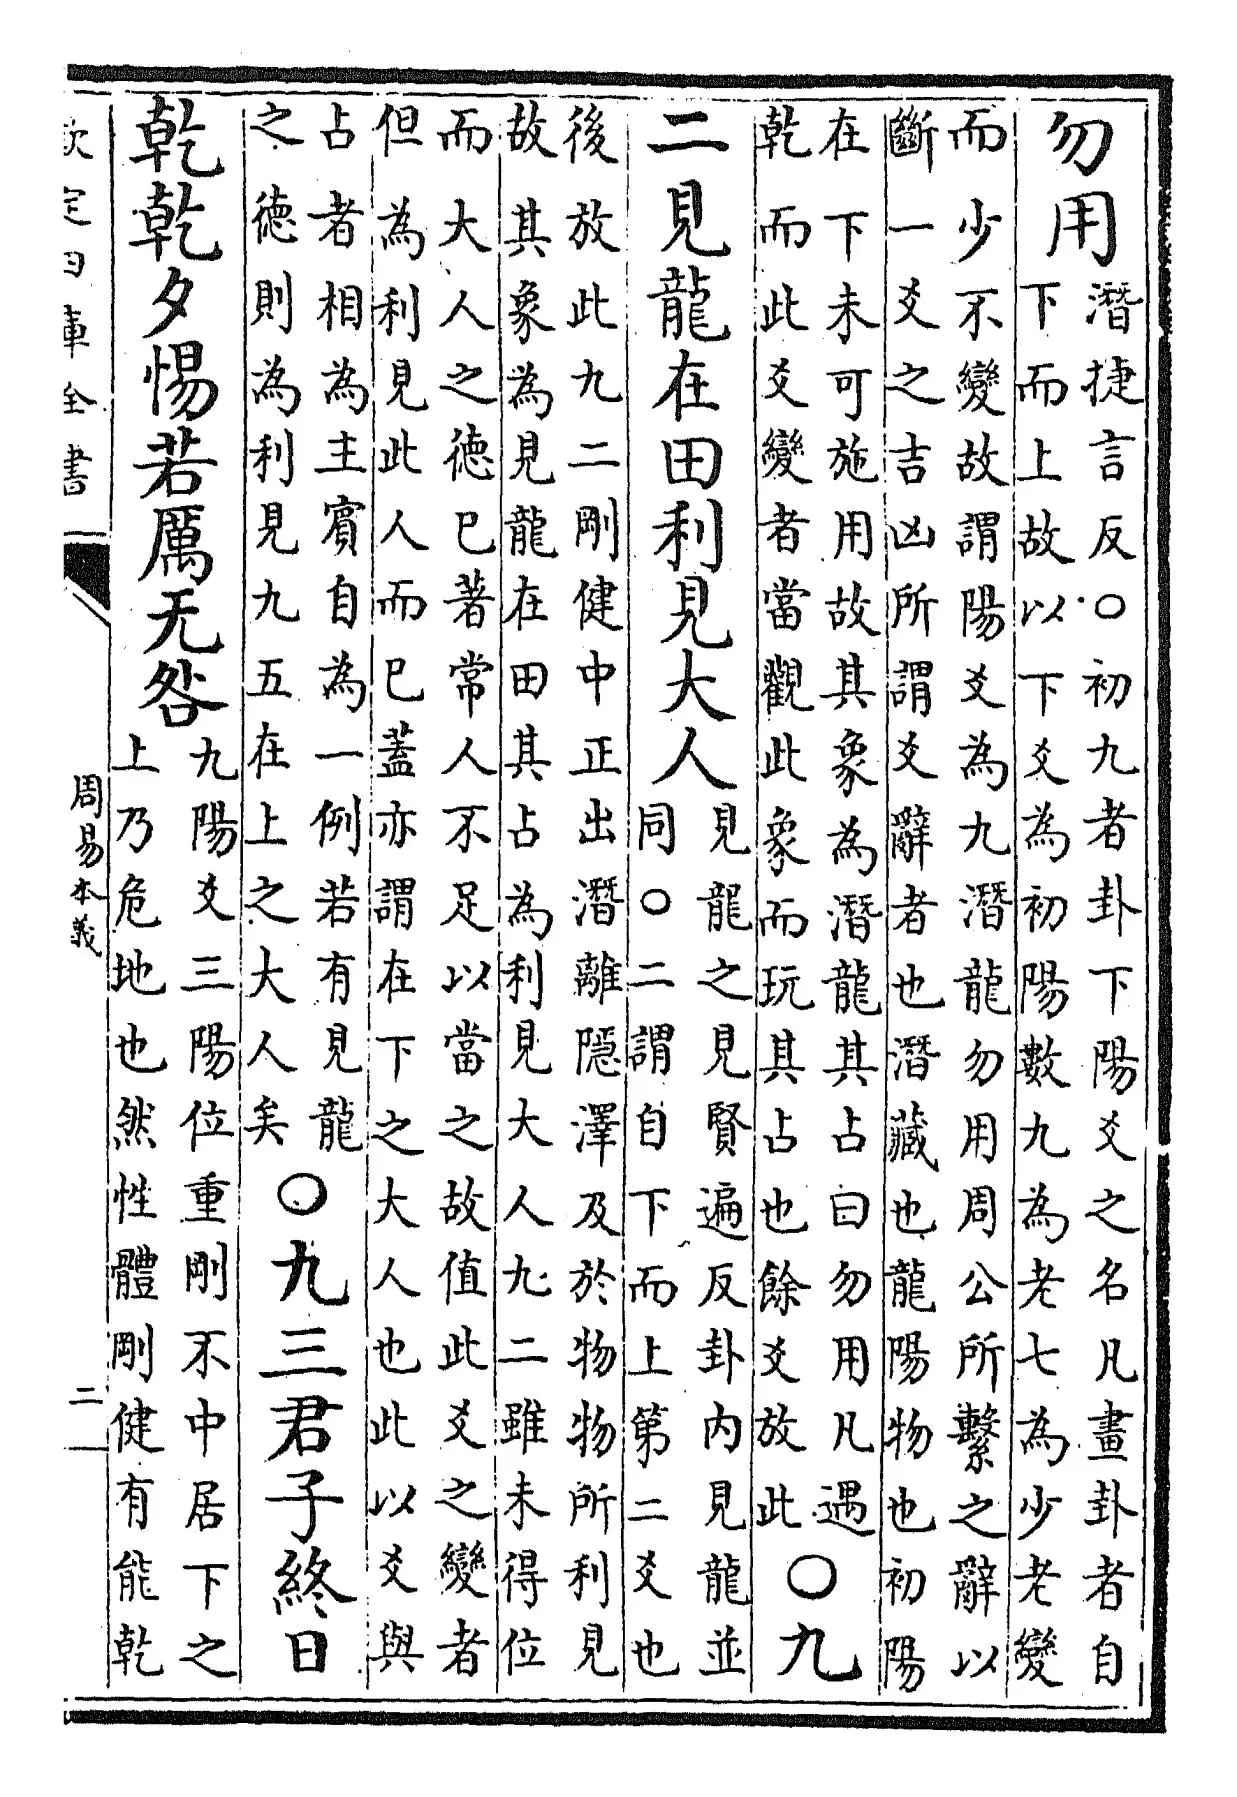 勿用
潛捷言反○初九者卦下陽爻之名凡畫卦者自
下而上故以下爻為初陽數九為老七為少老變
而少不變故謂陽爻為九潛龍勿用周公所繫之辭以
斷一爻之吉凶所謂爻辭者也潛藏也龍陽物也初陽
在下未可施用故其象為潛龍其占曰勿用凡遇
乾而此爻變者當觀此象而玩其占也餘爻放此
○九
二見龍在田利見大人
見龍之見賢遍反卦内見龍並
同○二謂自下而上第二爻也
後放此九二剛健中正出潛離隱澤及於物物所利見
故其象為見龍在田其占為利見大人九二雖未得位
而大人之德已著常人不足以當之故值此爻之變者
但為利見此人而已蓋亦謂在下之大人也此以爻與
占者相為主賓自為一例若有見龍
之德則為利見九五在上之大人矣
○九三君子終日
乾乾夕惕若厲无咎
九陽爻三陽位重剛不中居下之
上乃危地也然性體剛健有能乾
欽定四庫全書
周易本義
二